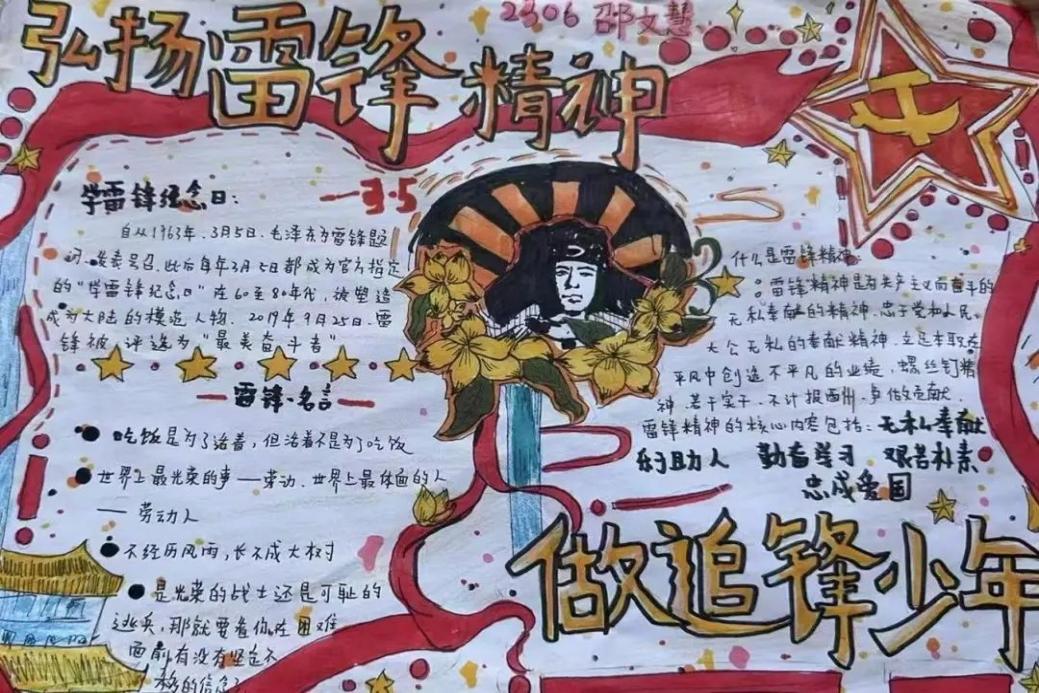 2306 邵文慧
弘扬雷锋精神
学雷锋纪念日：
一3.5
自从1963年、3月5日、毛泽东为雷锋题
词、发表号召，此后每年3月5日都成为官方指定
的“学雷锋纪念日”在60至80年代，被塑造
成为大陆的模范人物 2019年9月25日、雷
锋被 评选为“最美奋斗者”
一雷锋·名言一
吃饭是为了活着，但活着不是为了吃饭
世界上最光荣的事——劳动、世界上最体面的人
— 劳动人
不经历风雨，长不成大树
是光荣的战士还是可耻的
逃兵，那就要看你在困难
面前有没有坚定不
移的信念
什么是雷锋精神：
雷锋精神是为共产主义而奋斗的
无私奉献的精神、忠于党和人民、
大公无私的奉献精神、立足本职在
平凡中创造不平凡的业绩，螺丝钉精
神、苦干实干、不计报酬、争做贡献、
雷锋精神的核心内容包括：无私奉献
乐于助人 勤奋学习 艰苦朴素
忠成爱国
做追锋少年